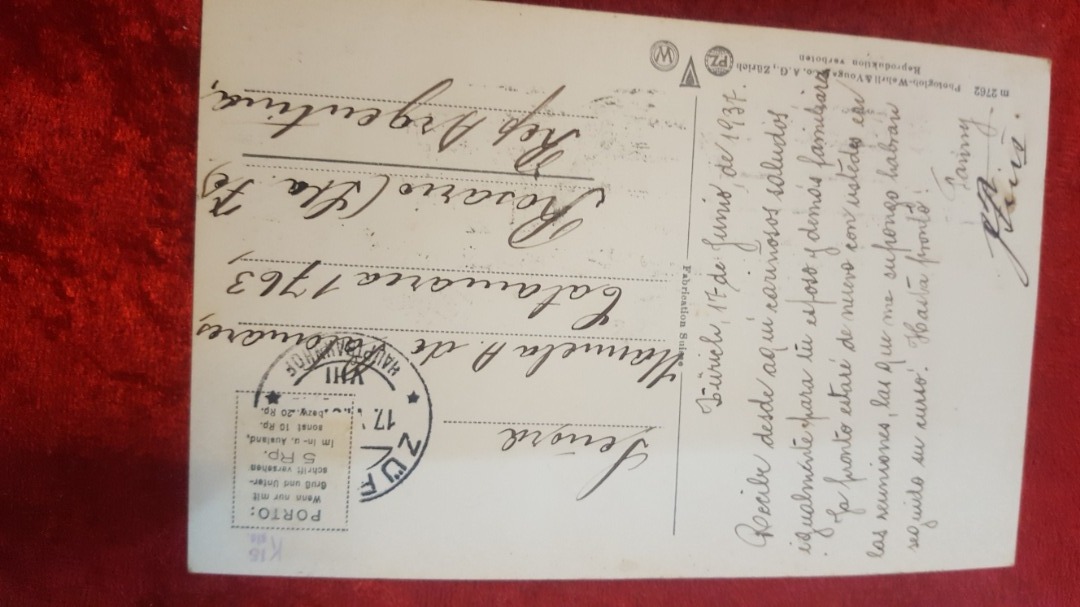 Zürich, 17 de Junio, de 1937.
Recibe desde aquí cariñosos saludos
igualmente para tu esposo y demas familiares
Ya pronto estaré de nuevo con ustedes en
las reuniones, las que me supongo habrán
seguido su curso. Hasta pronto.
Fanny
m 2762
Photoglob-Wehrli & Vouga & Co. A.G., Zürich
Reproduktion verboten
PZ
W
Fabrication Suisse
Señora
Manuela A. de
Catamarca 1763,
Rosario (Sta. Fe)
Rep Argentina,
ZÜR
17.
VIII
HAUPTBAHNHOF
PORTO:
Wenn nur mit
Gruß und Unter-
schrift versehen
5 Rp.
im In- u. Ausland,
sonst 10 Rp.
bezw. 20 Rp.
K 18